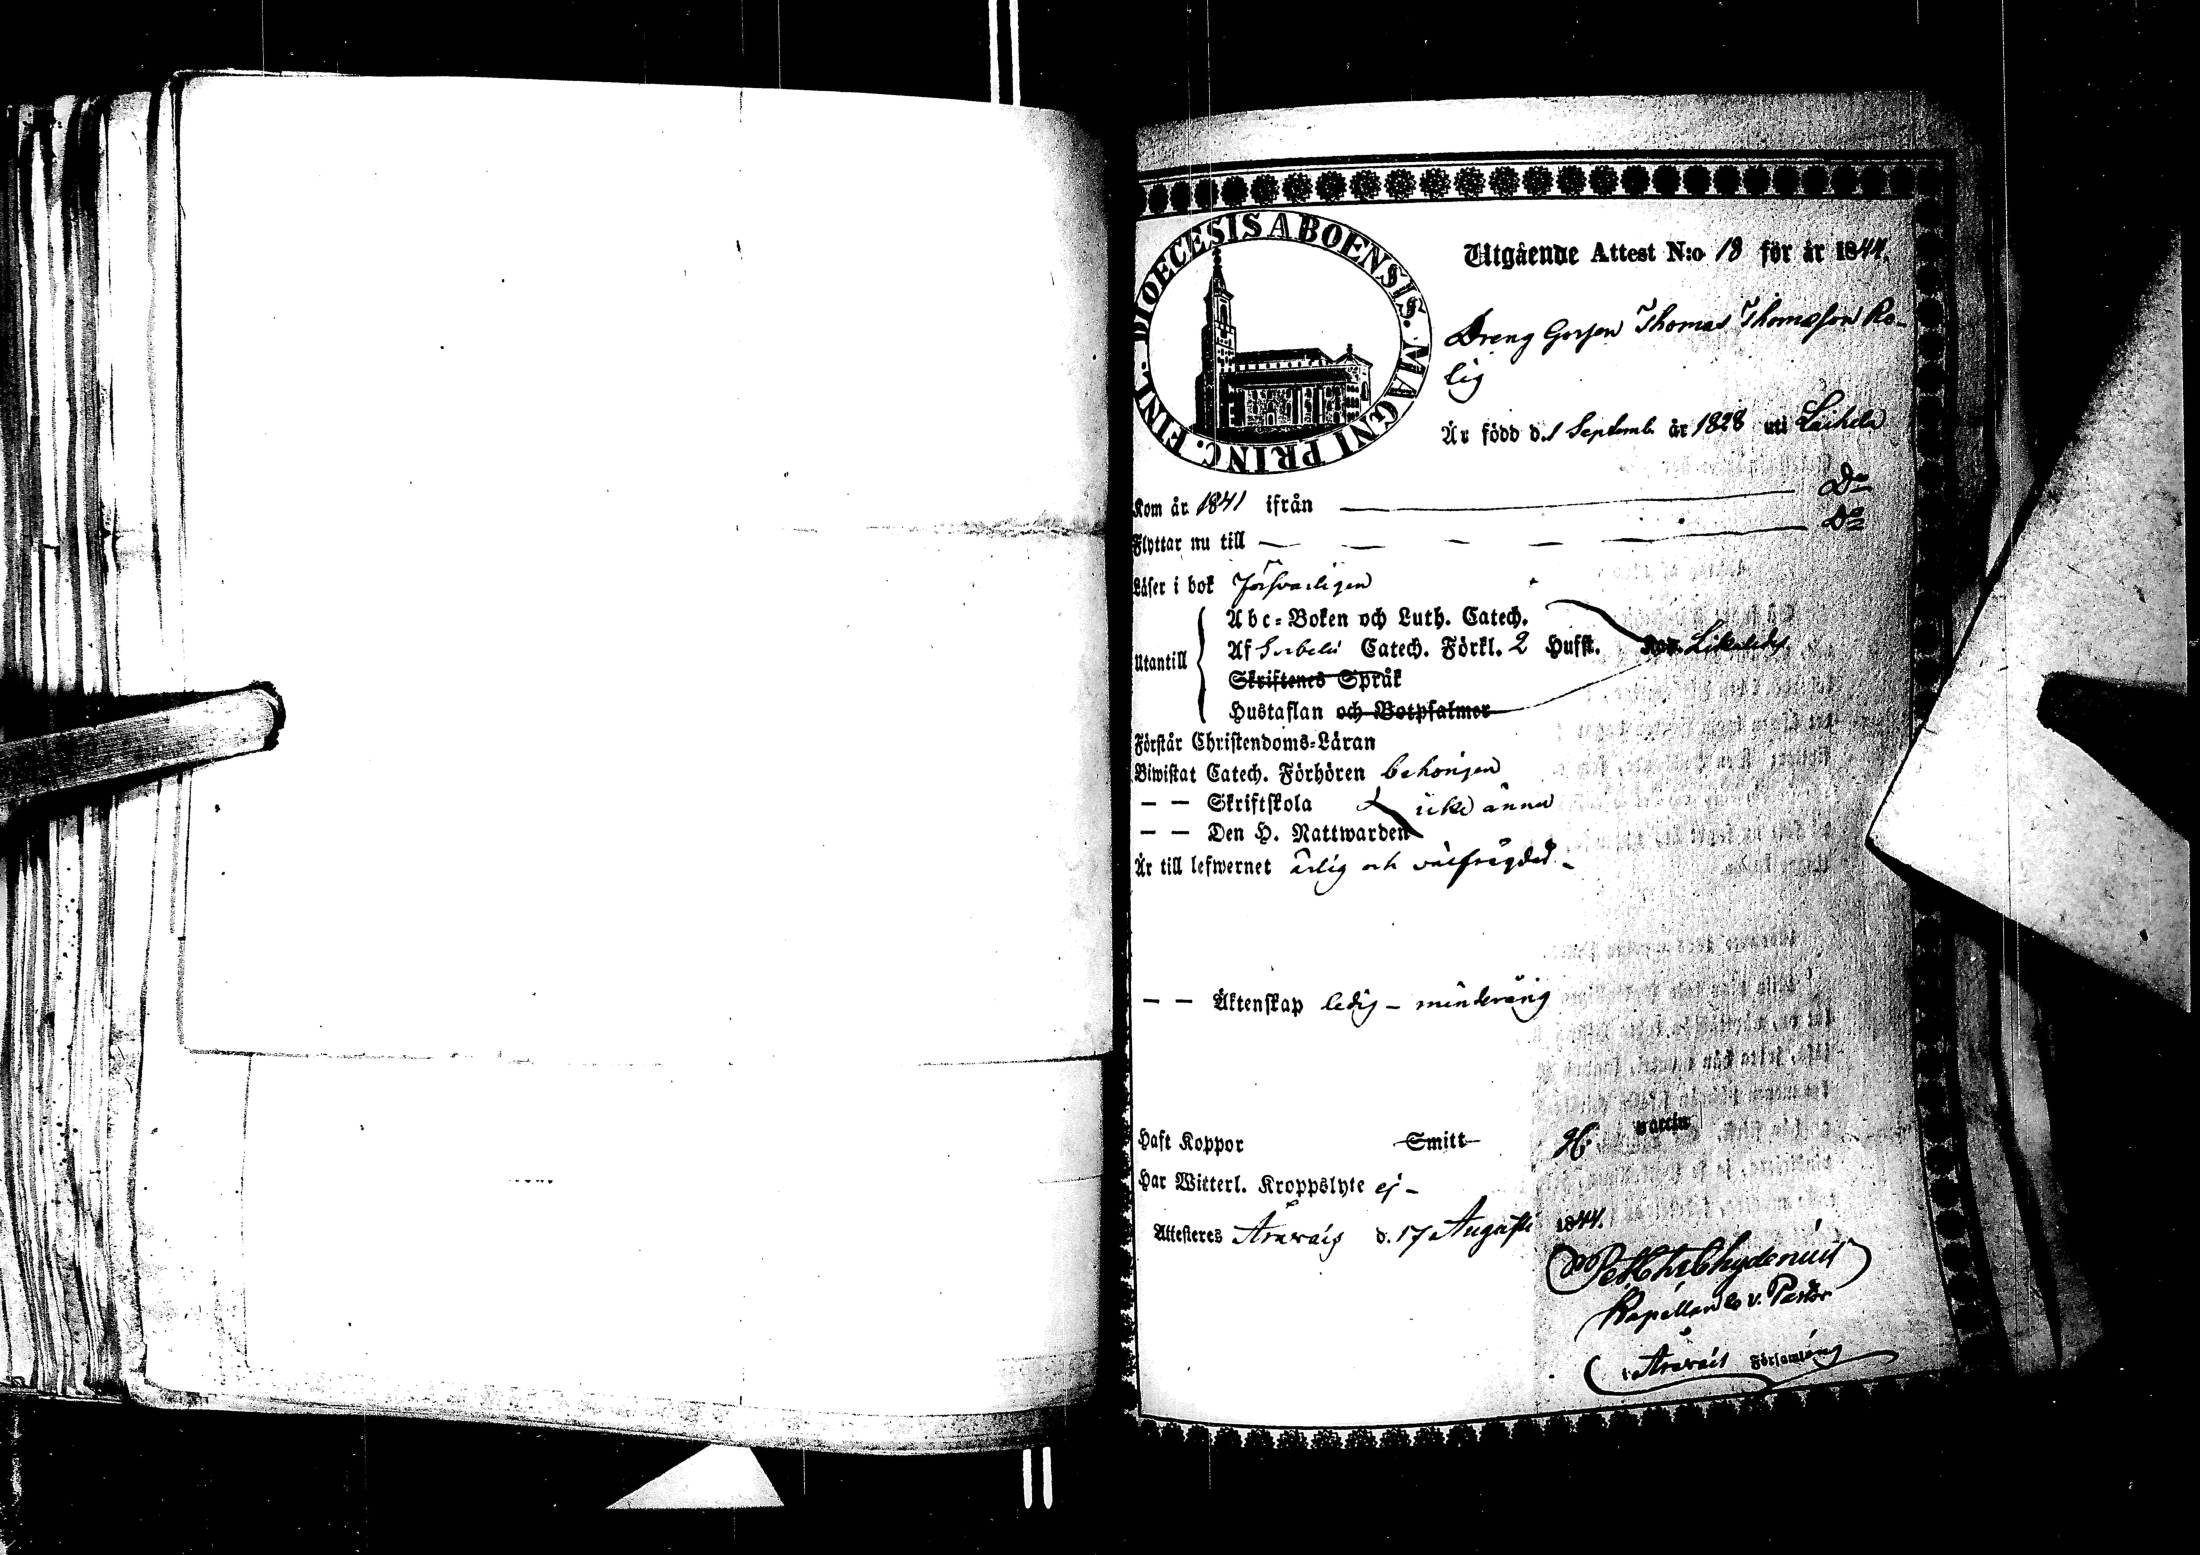 DIOECESIS ABOENSIS. MAGNI PRINC. FINL.
Utgående Attest N:o 18 för år 1844.
Dreng Gossen Thomas Thomasson Ro-
lig
Är född d. 1 Septemb. år 1828 uti Laihela
Kom år 1841 ifrån — Do
Flyttar nu till — — — — — Do
Läser i bok försvarligen
Utantill
Abc-Boken och Luth. Catech.
Af Catech. Förkl. 2 Hufst. Likaledes
Skriftenes Språk
Hustaflan och Botpsalmer
Förstår Christendoms-Läran
Biwistat Catech. Förhören behörigen
— — Skriftskola icke ännu
— — Den H. Nattwarden
Är till lefwernet ärlig och välfrägdad -
— — Äktenskap ledig - minderårig
Haft Koppor Smitt H. vaccin
Har Witterl. Kroppslyte ej -
Attesteres Årvais d. 17 Augusti 1844.
Pet. Chydenius
Kapellan & v. Pastor
i Årvais Församling